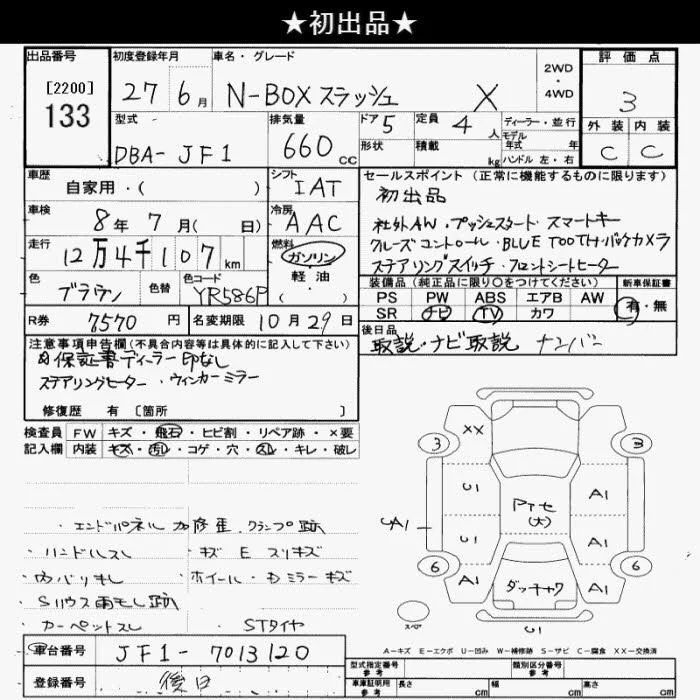 ★初出品★
出品番号
[2200]
133
初度登録年月
27年6月
車名・グレード
N-BOXスラッシュ X
2WD・4WD
評価点
3
外装 内装
C C
型式
DBA-JF1
排気量
660 cc
ドア 5
定員 4人
形状
積載 kg
ディーラー・並行
モデル年式 年
ハンドル 左・右
車歴
自家用・( )
シフト
IAT
セールスポイント (正常に機能するものに限ります)
初出品
社外AW・プッシュスタート・スマートキー
クルーズコントロール・BLUE TOOTH・バックカメラ
ステアリングスイッチ・フロントシートヒーター
車検
8年7月( 日)
冷房
AAC
走行
12万4千107km
燃料
ガソリン
軽・油
( )
色
ブラウン
色替
色コード
YR586P
装備品 (純正品に限り○をつけてください)
新車保証書
PS PW ABS エアB AW
SR ナビ TV カワ
有・無
R券 7570円
名変期限 10月29日
後日品
取説・ナビ取説 ナンバー
注意事項申告欄(不具合内容等は具体的に記入して下さい)
保証書ディーラー印なし
ステアリングヒーター・ウィンカーミラー
修復歴 有 [箇所 ]
検査員 FW キズ・飛石・ヒビ割・リペア跡・×要
記入欄 内装 キズ・汚レ・コゲ・穴・スレ・キレ・破レ
・エンドパネル 加修歪 クランプ跡
・ハンドルスレ ・キズ E スリキズ
・内バリキレ ・ホイール・Dミラーキズ
・Sハウス雨モレ跡
・カーペットスレ STタイヤ
XX
3 3
U1 A1
Pアセ
(大)
U1 A1
6 6
A1 A1
ダッチャク
スペア
U1
A-キズ E-エクボ U-凹み W-補修跡 S-サビ C-腐食 XX-交換済
車台番号 JF1-7013120
登録番号 後日
型式指定番号 参考
類別区分番号 参考
車庫証明用 参考
長さ cm 幅 cm 高さ cm